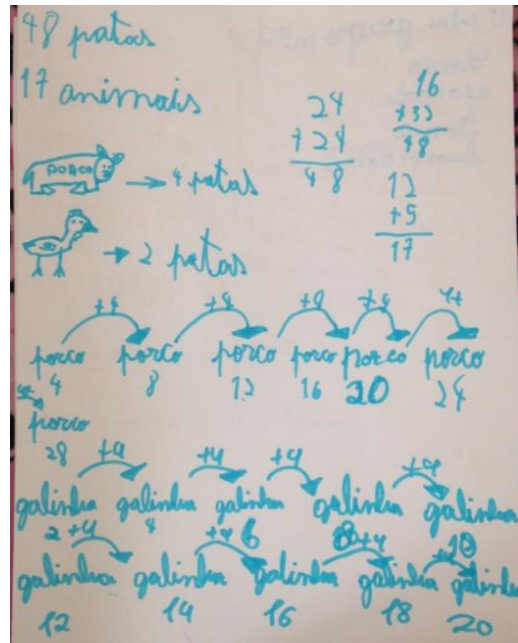 48 patas
17 animais
24
+24
48
16
+32
48
12
+5
17
PORCO → 4 patas
→ 2 patas
+4 +4 +4 +4 4+
porco porco porco porco porco porco
4 8 12 16 20 24
4+
porco
28
+4 +4 +4 +4
galinha galinha galinha galinha galinha
2 4 6 8 10
+4 +4 +4
galinha galinha galinha galinha galinha
12 14 16 18 20